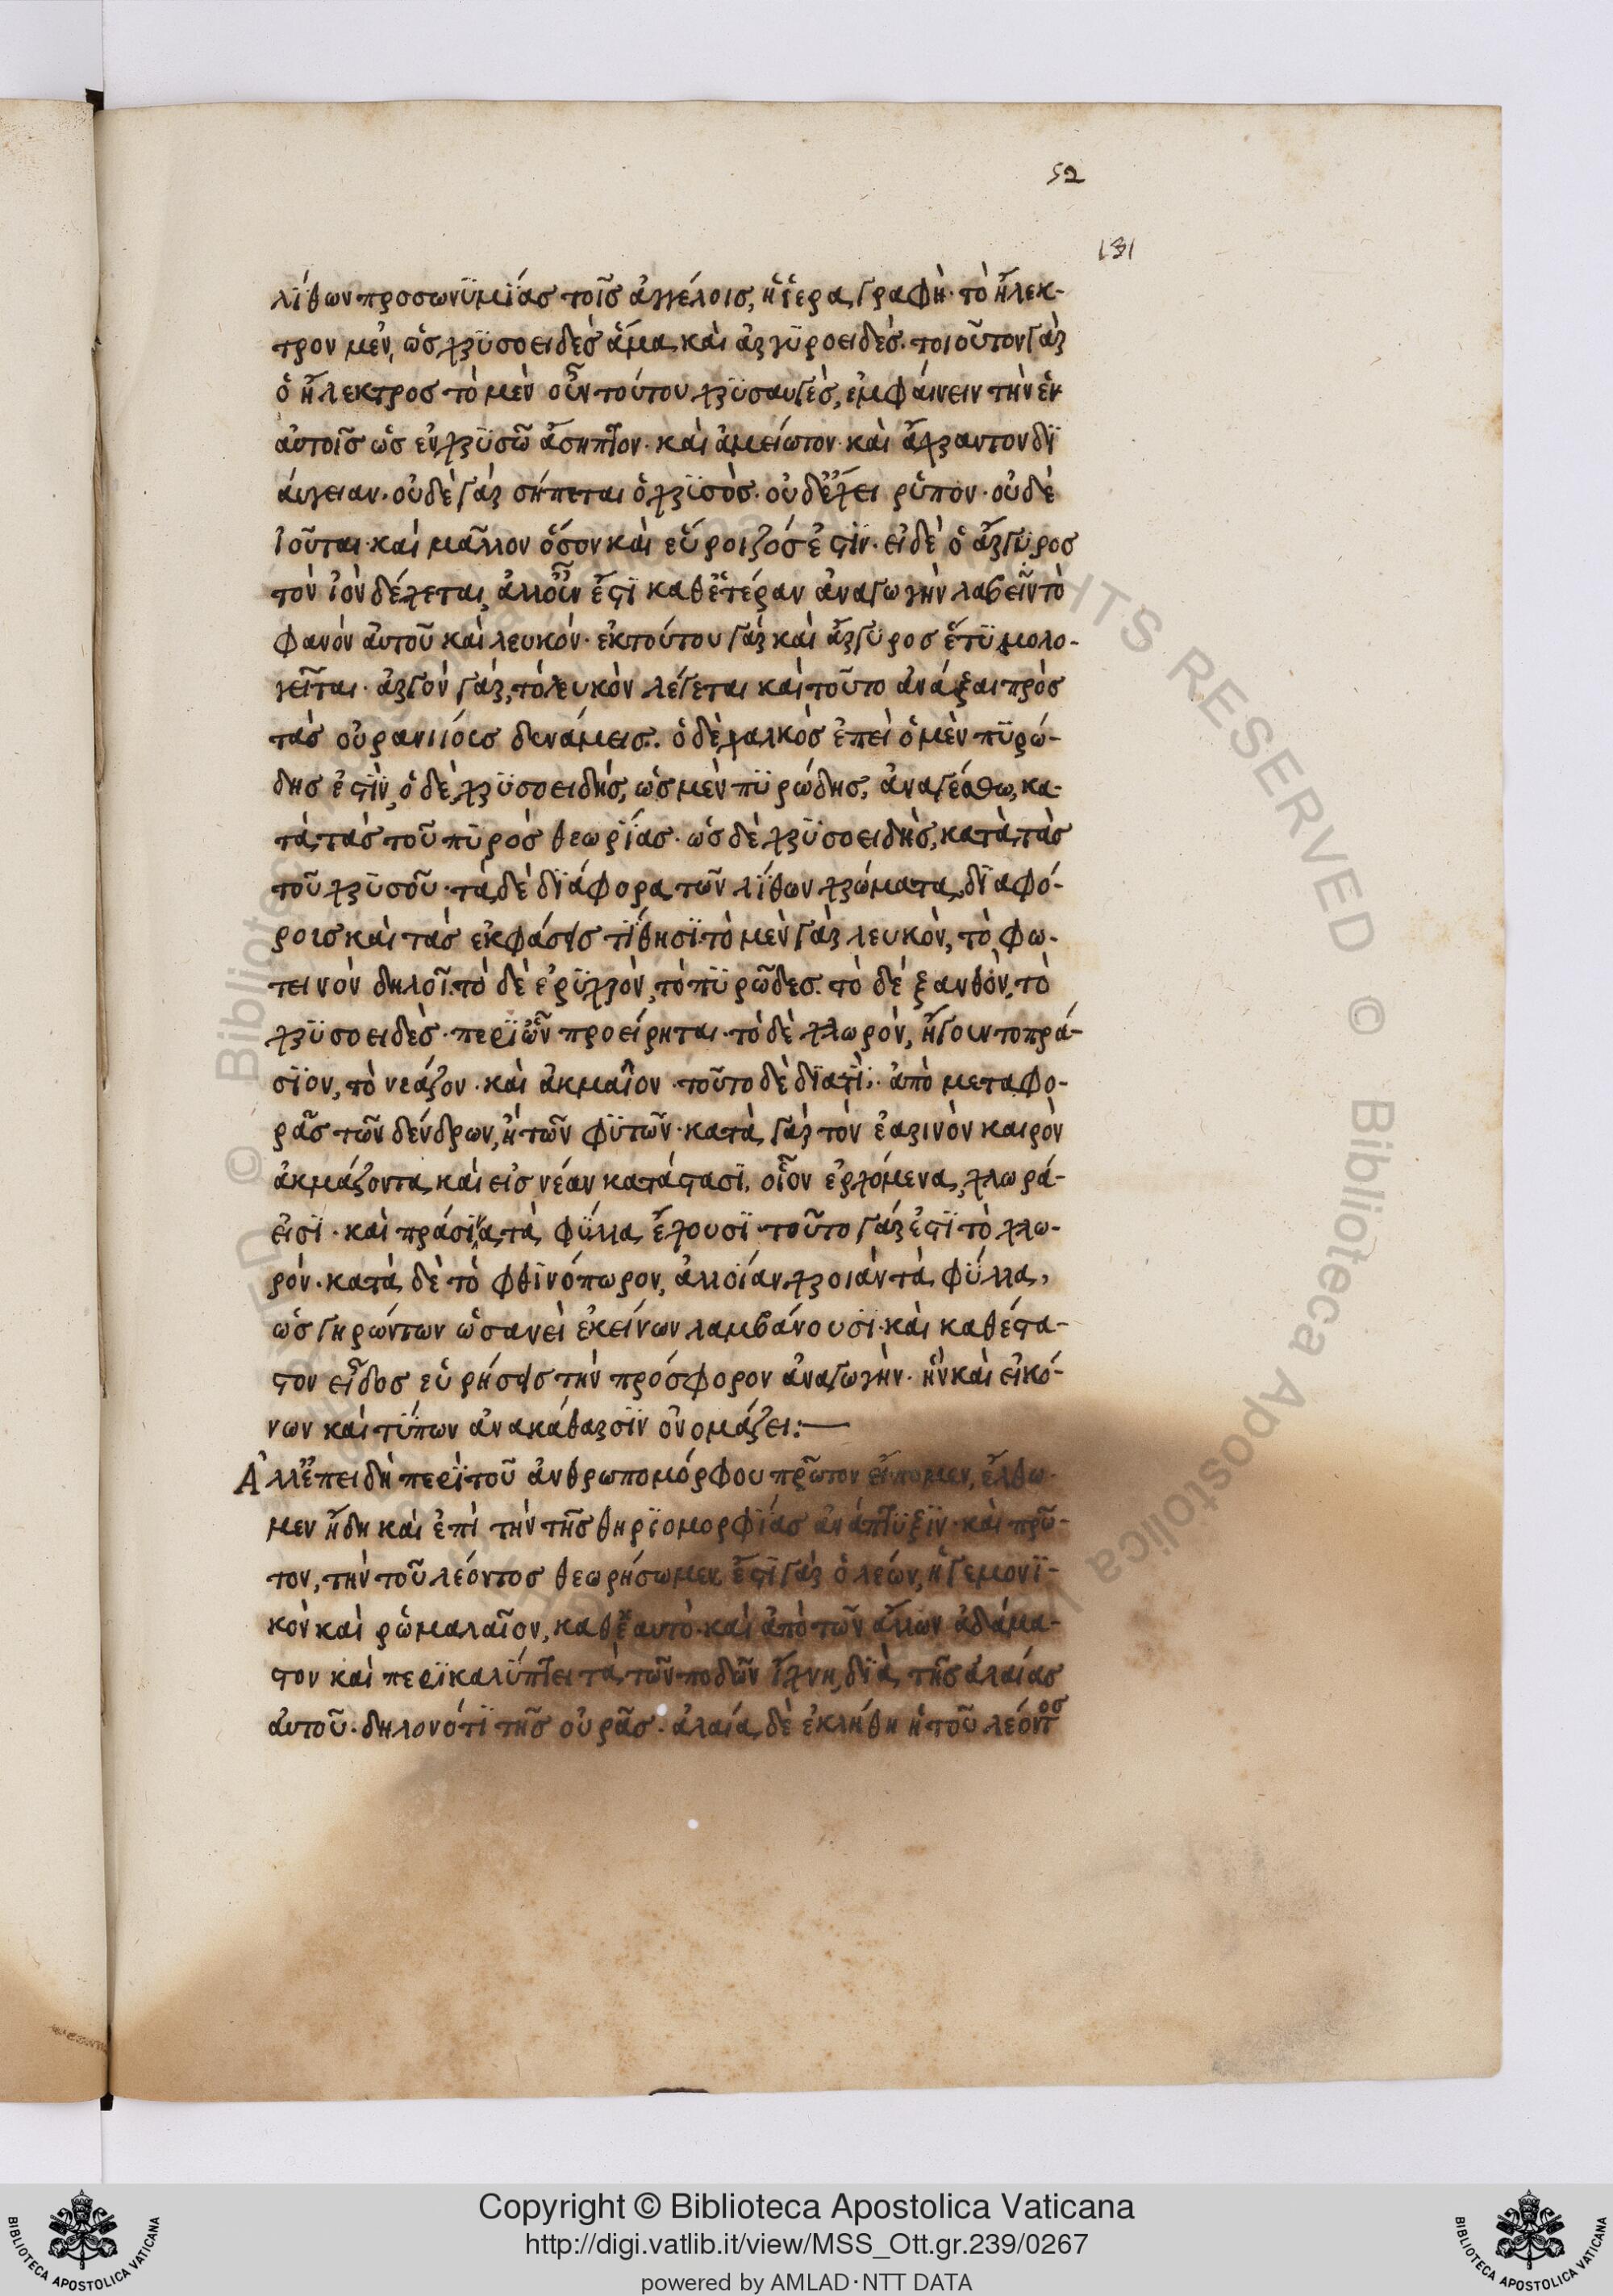 52
131
λίθων προσωνυμίας τοῖς ἀγγέλοις, ἡ ἱερα γραφὴ· τὸ ἤλεκ-
τρον μὲν, ὡς χρυσοειδὲς ἅμα καὶ ἀργυροειδὲς. τοιοῦτον γὰρ
ὁ ἤλεκτρος τὸ μὲν οὖν τούτου χρυσαυγὲς, ἐμφαίνειν τὴν ἐν
αὐτοῖς ὡς ἐν χρυσῶ ἄσηπτον· καὶ ἀμείωτον· καὶ ἄχραντον δι
άυγειαν· οὐδὲ γὰρ σήπεται ὁ χρυσὸς· οὐδ' ἔχει ῥύπον· οὐδὲ
ἰοῦται· καὶ μᾶλλον ὅσον καὶ εὔροιζός ἐστιν· εἰ δὲ ὁ ἄργυρος
τὸν ἰὸν δέχεται, ἀλλ' οὖν ἔστι καθ' ἑτέραν ἀναγωγὴν λαβεῖν τὸ
φανὸν ἀυτοῦ καὶ λευκόν· ἐκ τούτου γὰρ καὶ ἄργυρος ἐτυμολο-
γεῖται· ἀργὸν γὰρ, τὸ λευκὸν λέγεται καὶ τοῦτο ἀνάξαι πρὸς
τὰς οὐρανίους δυνάμεις. ὁ δὲ χαλκὸς ἐπεὶ ὁ μὲν πυρώ-
δης ἐστὶν, ὁ δὲ χρυσοειδής, ὡς μὲν πυρώδης, ἀναγέσθω, κα-
τὰ τὰς τοῦ πυρὸς θεωρίας· ὡς δὲ χρυσοειδὴς, κατὰ τὰς
τοῦ χρυσοῦ· τὰ δὲ διάφορα τῶν λίθων χρώματα, διαφό-
ροις καὶ τὰς ἐκφάσεις τίθησι· τὸ μὲν γὰρ λευκὸν, τὸ φω-
τεινὸν δηλοῖ. τὸ δὲ ἐρυχρὸν, τὸ πυρῶδες. τὸ δέ ξανθὸν, τὸ
χρυσοειδὲς· περὶ ὧν προείρηται· τὸ δὲ χλωρὸν, ἤγουν τοπρά-
σιον, τὸ νεάζον· καὶ ἀκμαῖον· τοῦτο δὲ διατί; ἀπὸ μεταφο-
ρᾶς τῶν δένδρων, ἢ τῶν φυτῶν· κατὰ γὰρ τὸν ἐαρινὸν καιρὸν
ἀκμάζοντα, καὶ εἰς νέαν κατάστασι, οἷον ἐρχόμενα, χλωρά-
εἰσι· καὶ πράσια, τὰ φύλλα ἔχουσι· τοῦτο γάρ ἐστι τὸ χλω-
ρόν· κατὰ δὲ τὸ φθινόπωρον, ἀλλοίαν χροιὰν τὰ φύλλα,
ὡς γηρώντων ὡσανεὶ ἐκείνων λαμβάνουσι· καὶ καθέκα-
στον εἶδος εὑρήσεις τὴν πρόσφορον ἀναγωγὴν· ἣν καὶ εἰκό-
νων καὶ τύπων ἀνακάθαρσιν ὀνομάζει:—
Ἀλλ' ἐπειδὴ περὶ τοῦ ἀνθρωπομόρφου πρῶτον εἴπομεν, ἔλθω-
μεν ἤδη καὶ ἐπὶ τὴν τῆς θηριομορφίας ἀνάπτυξιν· καὶ πρῶ-
τον, τὴν τοῦ λέοντος θεωρήσωμεν ἔστι γὰρ ὁ λέων, ἡγεμονι-
κὸν καὶ ῥωμαλαῖον, καθ' ἑαυτὸ· καὶ ἀπὸ τῶν ἄλλων ἀδάμα-
στον καὶ περικαλύπτει τὰ τῶν ποδῶν ἴχνη, διὰ τῆς ἀλαίας
ἀυτοῦ· δηλονότι τῆς οὐρᾶς· ἀλαία δὲ ἐκλήθη ἡ τοῦ λέοντος
Copyright © Biblioteca Apostolica Vaticana
http://digi.vatlib.it/view/MSS_Ott.gr.239/0267
powered by AMLAD·NTT DATA